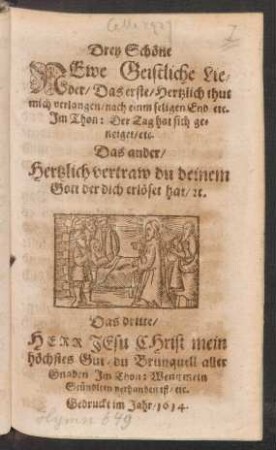 Drey Schöne
NEwe Geistliche Lie-
der/ Das erste/ Hertzlich thut
mich verlangen/ nach einm seligen End etc.
Im Thon: Der Tag hat sich ge-
neiget/ etc.
Das ander/
Hertzlich vertraw du deinem
Gott der dich erlöset hat/ ꝛc.
Das dritte/
HERR JEsu CHrist mein
höchstes Gut/ du Brunquell aller
Gnaden Im Thon: Wenn mein
Stündlein verhanden ist/ etc.
Gedruckt im Jahr/ 1614.
Hymn 649